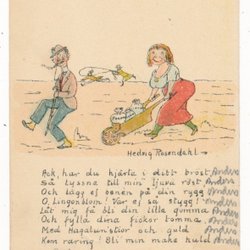 Hedvig Rosendahl →
Ack, har du hjärta i ditt bröst Anders
Så lyssna till min ljuva röst Anders
Och lägg ej benen på din rygg Anders
O, Lingonblom! Var ej så stygg! Anders
Låt mig få bli din lilla gumma Anders
Och fylla dina fickor tomma Anders
Med Hagalunds'kor och guld Anders
Kom raring! Bli min make huld Anders